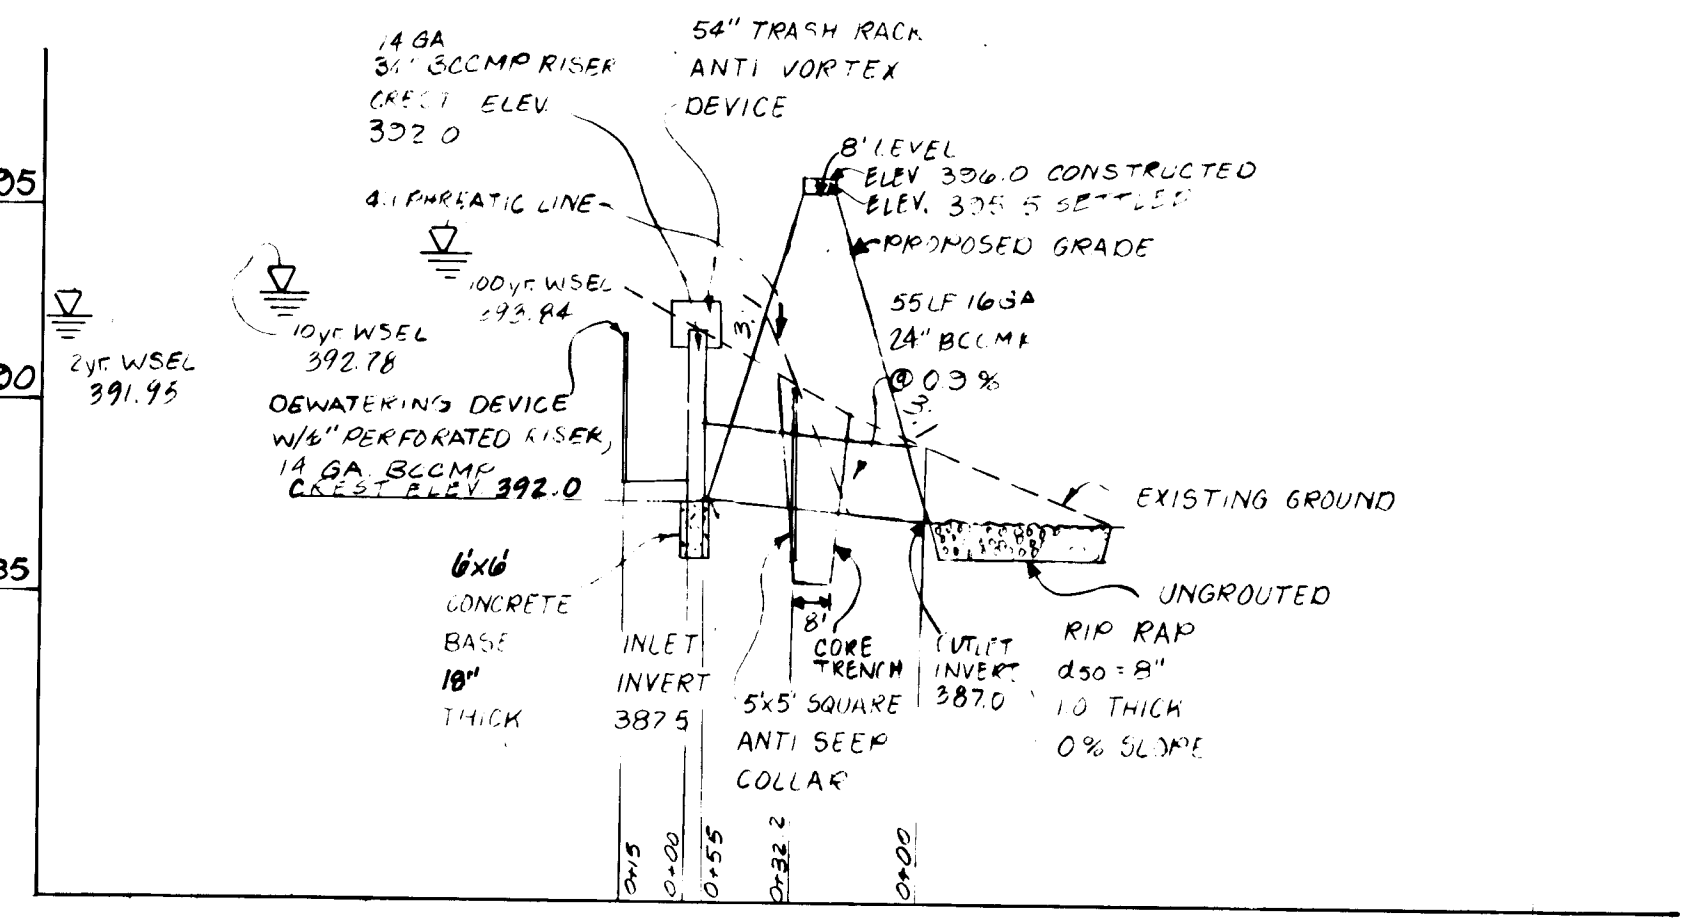 14 GA
BCCMP RISER
CREST ELEV.
392.0
54" TRASH RACK
ANTI VORTEX
DEVICE
8' LEVEL
ELEV 396.0 CONSTRUCTED
ELEV. 395.5 SETTLED
4:1 PHREATIC LINE
PROPOSED GRADE
100 yr. WSEL
393.84
10 yr. WSEL
392.78
2 yr. WSEL
391.95
55 LF 16 GA
24" BCCMP
@ 0.9%
3:1
3:1
DEWATERING DEVICE
PERFORATED RISER,
14 GA. BCCMP
CREST ELEV. 392.0
EXISTING GROUND
6'x6'
CONCRETE
BASE
18"
THICK
INLET
INVERT
387.5
8'
CORE
TRENCH
5'x5' SQUARE
ANTI SEEP
COLLAR
OUTLET
INVERT
387.0
UNGROUTED
RIP RAP
d50 = 8"
1.0 THICK
0% SLOPE
0+15
0+00
0+55
0+32.2
0+00